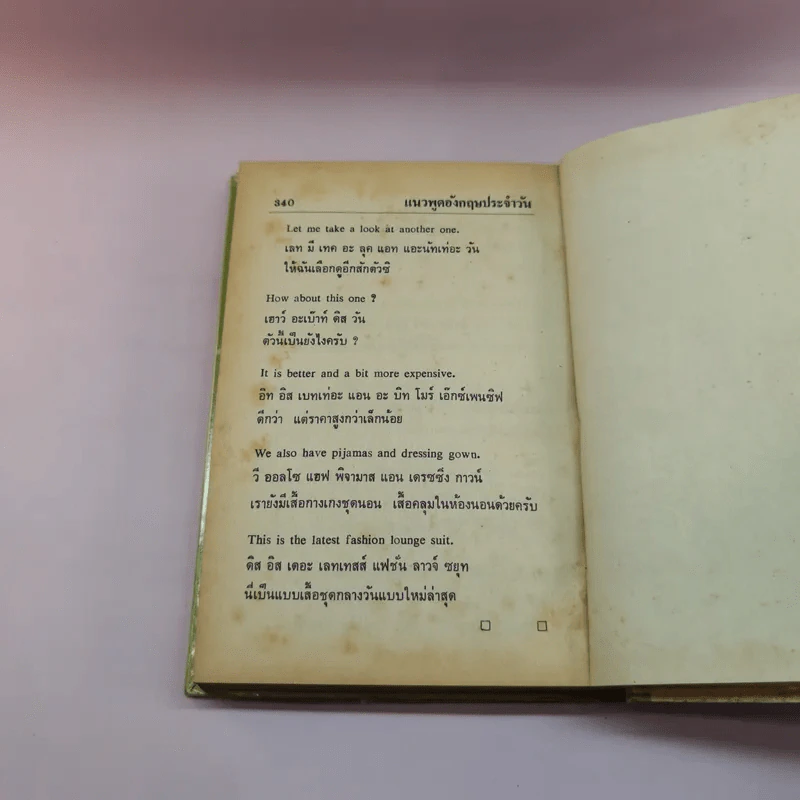 340 แนวพูดอังกฤษประจำวัน
Let me take a look at another one.
เลท มี เทค อะ ลุค แอท แอะนัทเท่อะ วัน
ให้ฉันเลือกดูอีกสักตัวซิ
How about this one ?
เฮาว์ อะเบ๊าท์ ดิส วัน
ตัวนี้เป็นยังไงครับ ?
It is better and a bit more expensive.
อิท อิส เบทเท่อะ แอน อะ บิท โมร์ เอ๊กซ์เพนซิฟ
ดีกว่า แต่ราคาสูงกว่าเล็กน้อย
We also have pijamas and dressing gown.
วี ออลโซ แฮฟ พิจามาส แอน เดรซซิ่ง กาวน์
เรายังมีเสื้อกางเกงชุดนอน เสื้อคลุมในห้องนอนด้วยครับ
This is the latest fashion lounge suit.
ดิส อิส เดอะ เลทเทสส์ แฟชั่น ลาวจ์ ซยุท
นี่เป็นแบบเสื้อชุดกลางวันแบบใหม่ล่าสุด